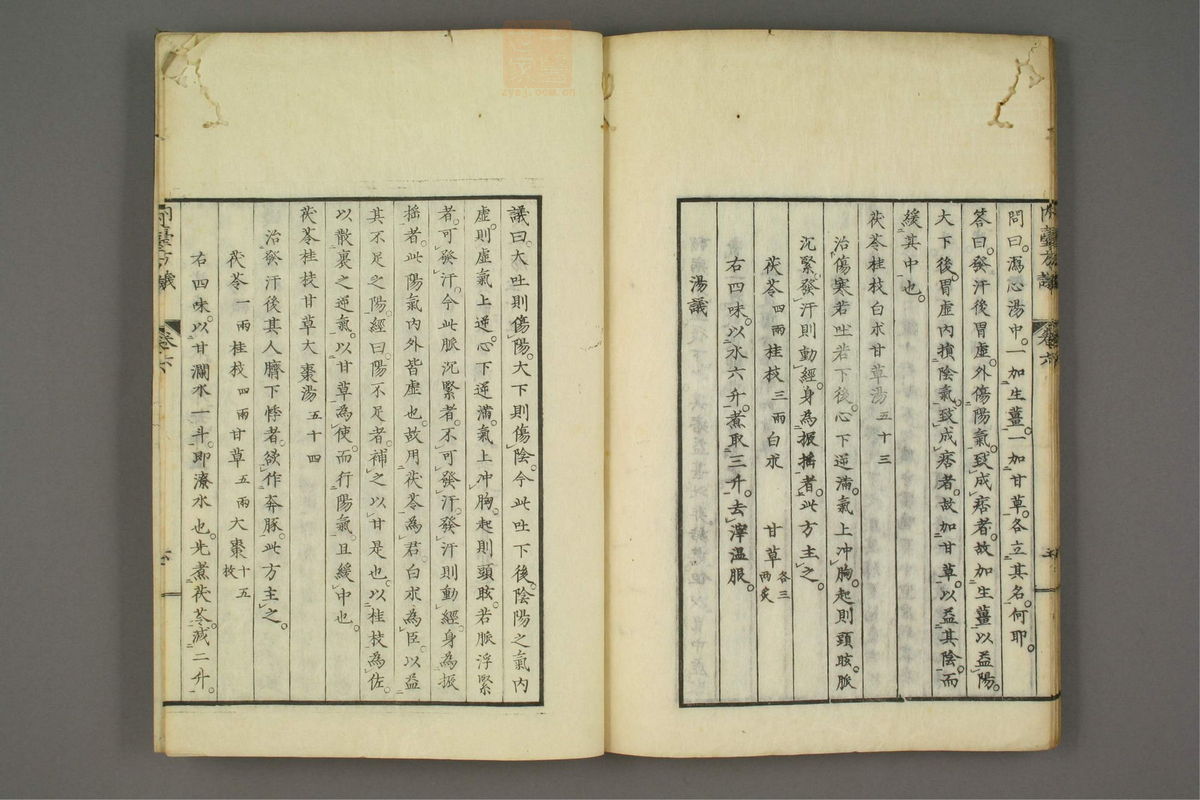 內臺方議 卷六
問曰瀉心湯中一加生薑一加甘草各立其名何耶
答曰發汗後胃虛外傷陽氣致成痞者故加生薑以益陽
大下後胃虛內損陰氣致成痞者故加甘草以益其陰而
緩其中也
茯苓桂枝白朮甘草湯五十三
治傷寒若吐若下後心下逆滿氣上冲胸起則頭眩脈
沉緊發汗則動經身為振搖者此方主之
茯苓四兩桂枝三兩白朮 甘草各三兩炙
右四味以水六升煮取三升去滓溫服
湯議
議曰大吐則傷陽大下則傷陰今此吐下後陰陽之氣內
虛則虛氣上逆心下逆滿氣上冲胸起則頭眩若脈浮緊
者可發汗今此脈沉緊者不可發汗發汗則動經身為振
搖者此陽氣內外皆虛也故用茯苓為君白朮為臣以益
其不足之陽經曰陽不足者補之以甘是也以桂枝為佐
以散裏之逆氣以甘草為使而行陽氣且緩中也
茯苓桂枝甘草大棗湯五十四
治發汗後其人臍下悸者欲作奔豚此方主之
茯苓一兩桂枝四兩甘草五兩大棗十五枚
右四味以甘瀾水一斗即潦水也先煮茯苓減二升
內臺方議 卷六